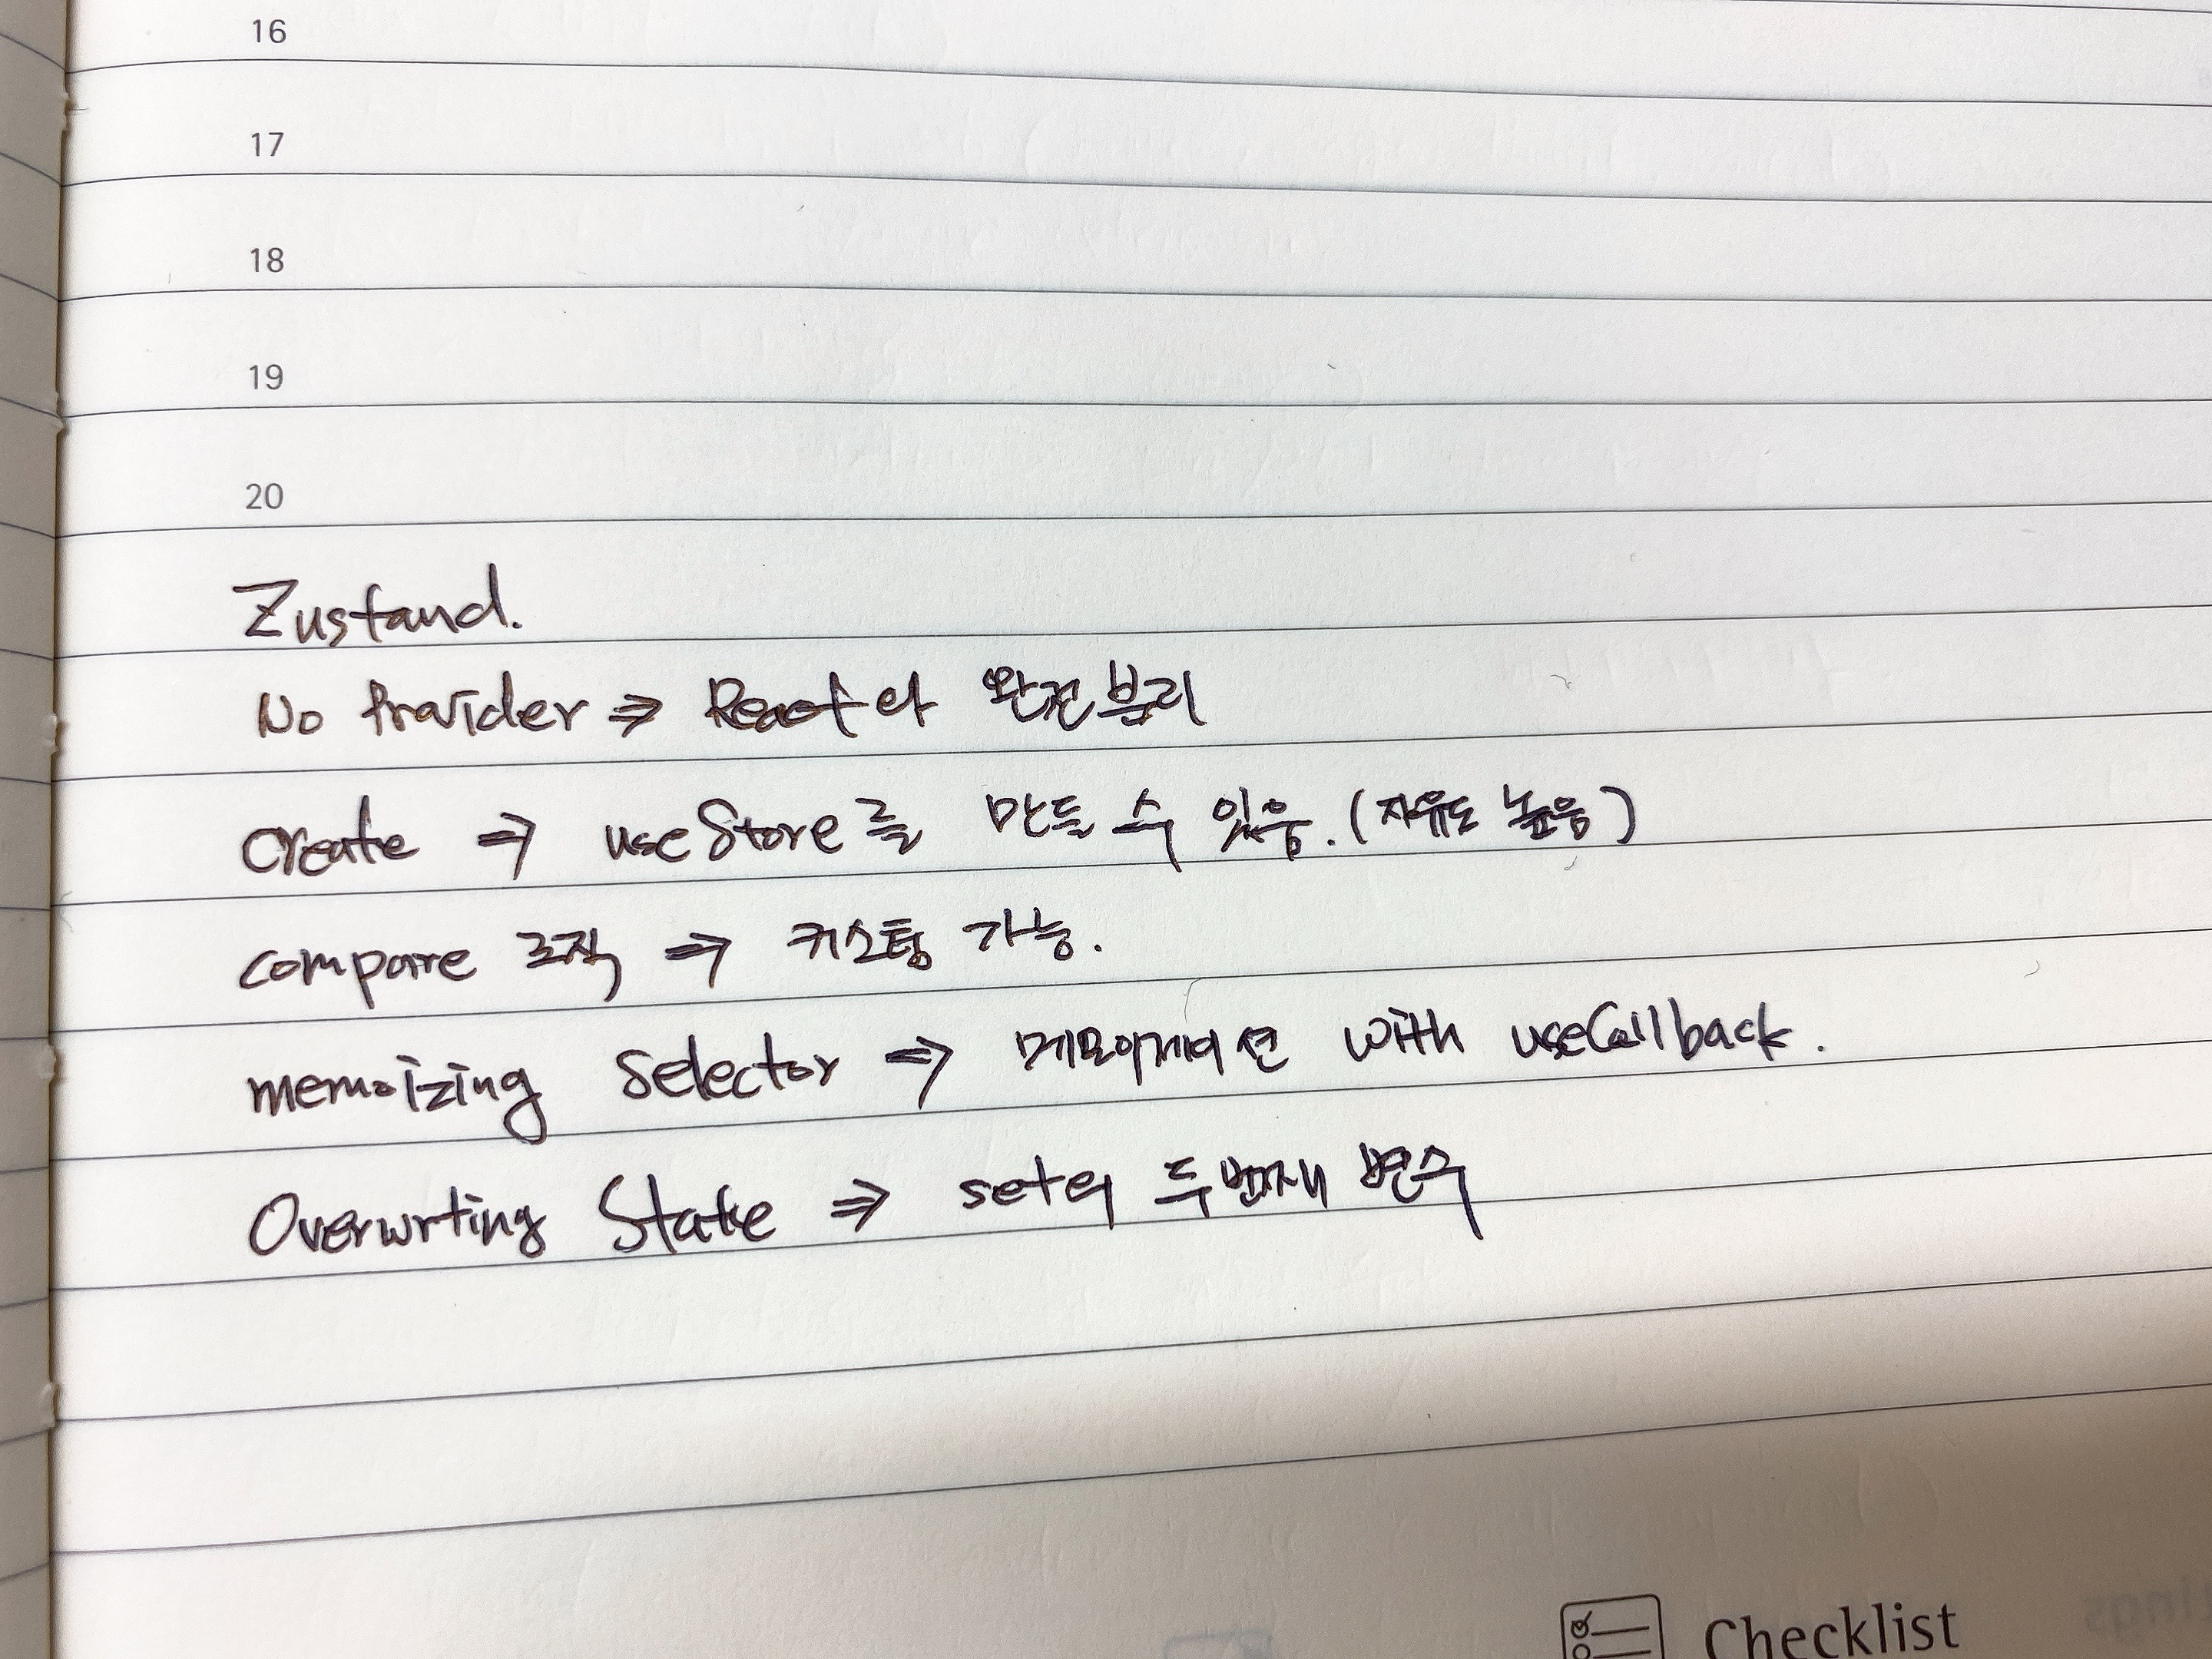 16
17
18
19
20
Zustand.
No Provider ⇒ React와 완전분리
create ⇒ useStore를 만들 수 있음. (자유도 높음)
compare 로직 ⇒ 커스텀 가능.
memoizing selector ⇒ 메모이제이션 with useCallback.
Overwrting State ⇒ set의 두번째 변수
Checklist